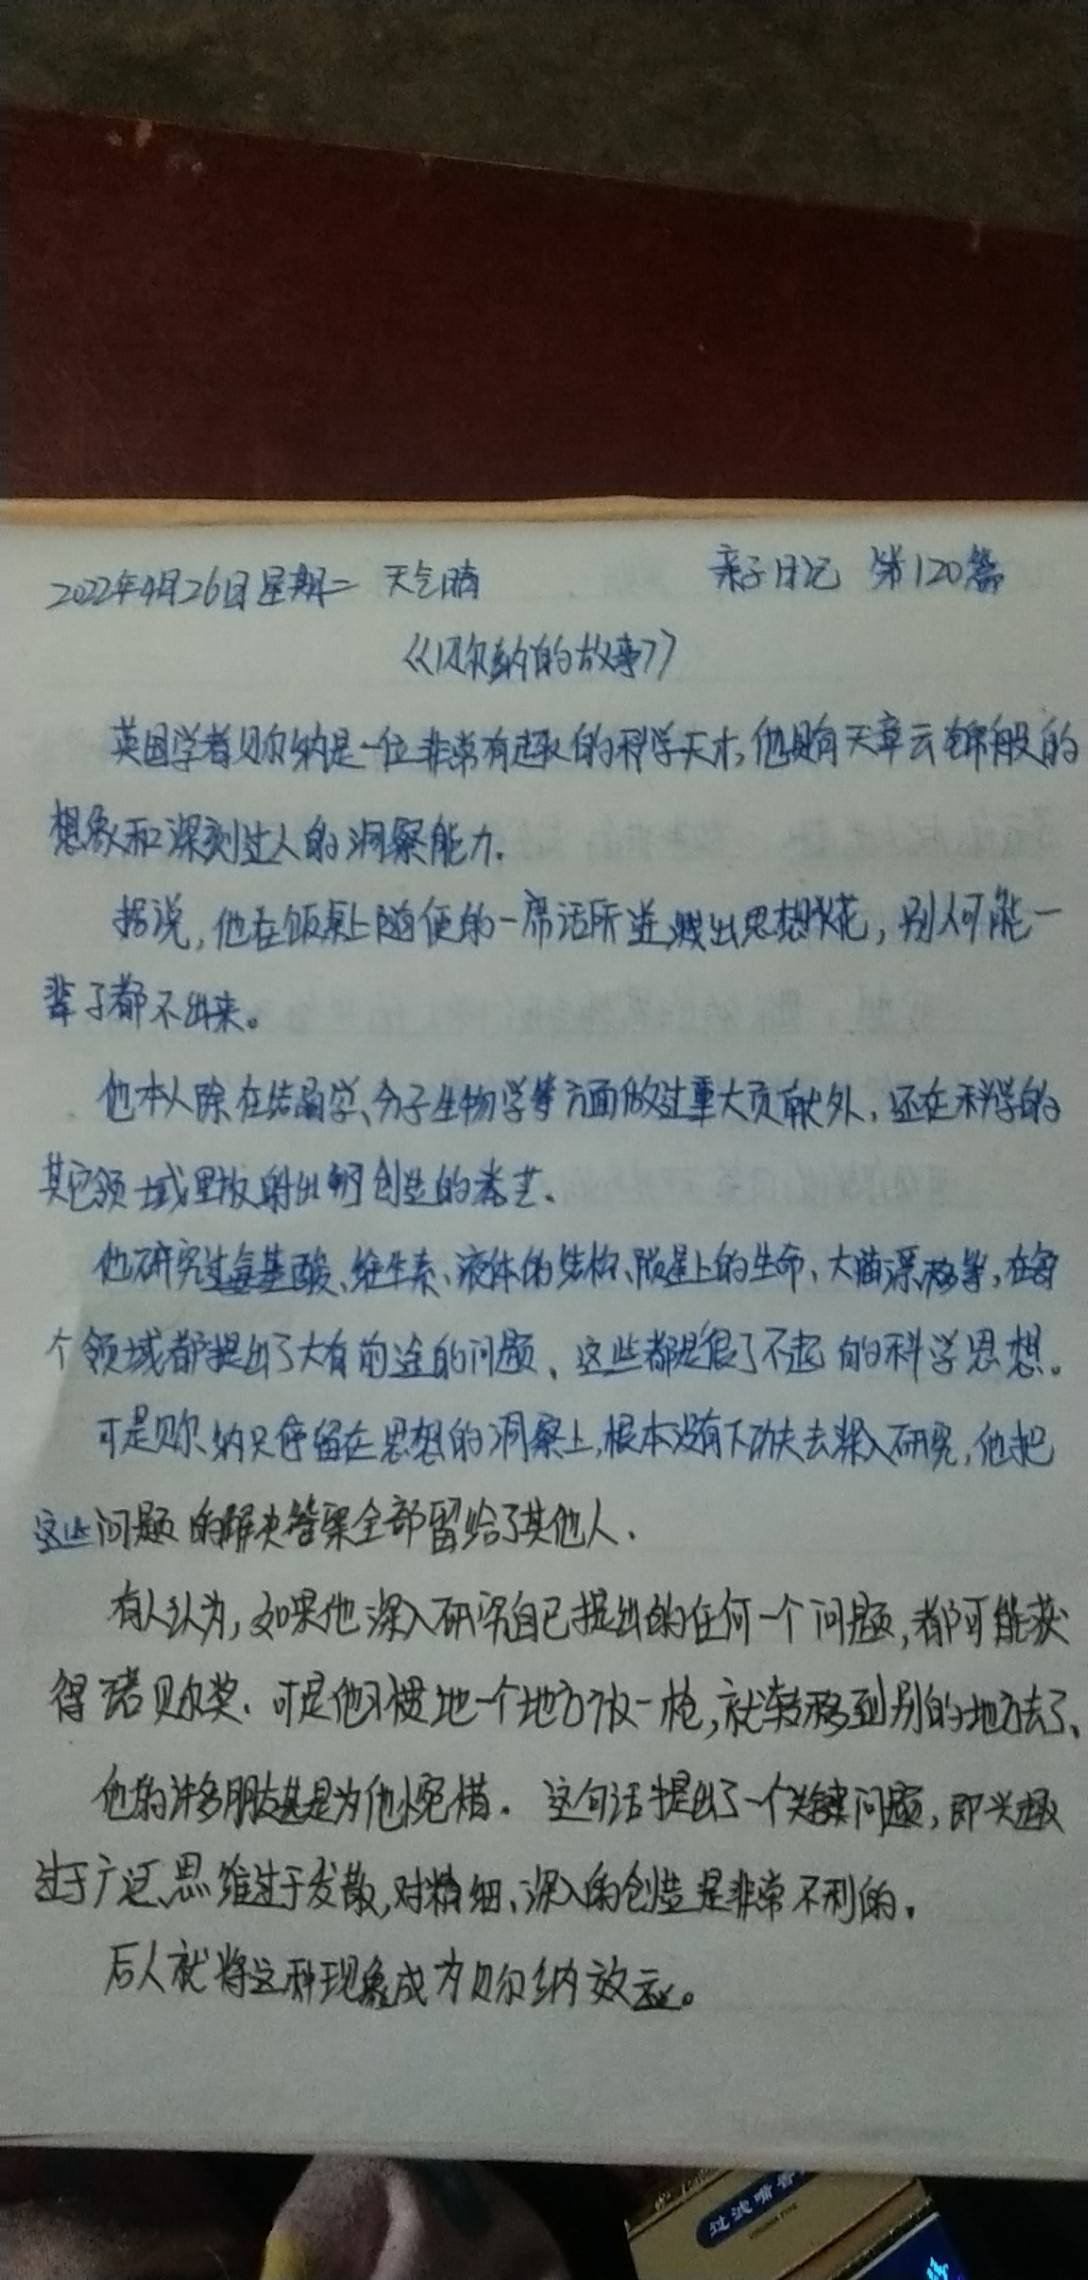 2022年4月26日星期二 天气晴 亲子日记 第120篇
《贝尔纳的故事》
英国学者贝尔纳是一位非常有趣的科学天才,他具有天章云锦般的
想象和深刻过人的洞察能力.
据说,他在饭桌上随便的一席话所迸溅出思想火花,别人可能一
辈子都不出来。
他本人除在结晶学、分子生物学等方面做过重大贡献外,还在科学的
其它领域里放射出创造的光芒、
他研究过氨基酸、维生素、液体的结构、陨星上的生命、大陆漂移等,在每
个领域都提出了大有前途的问题、这些都是很了不起的科学思想。
可是贝尔纳只停留在思想的洞察上,根本没有下功夫去深入研究,他把
这些问题的解决答案全部留给了其他人、
有人认为,如果他深入研究自己提出的任何一个问题,都可能获
得诺贝尔奖.可是他习惯地一个地方放一枪,就转移到别的地方去了、
他的许多朋友甚是为他惋惜.这句话提出了一个关键问题,即兴趣
过于广泛、思维过于发散,对精细、深入的创造是非常不利的.
后人就将这种现象成为贝尔纳效应。
过滤嘴香